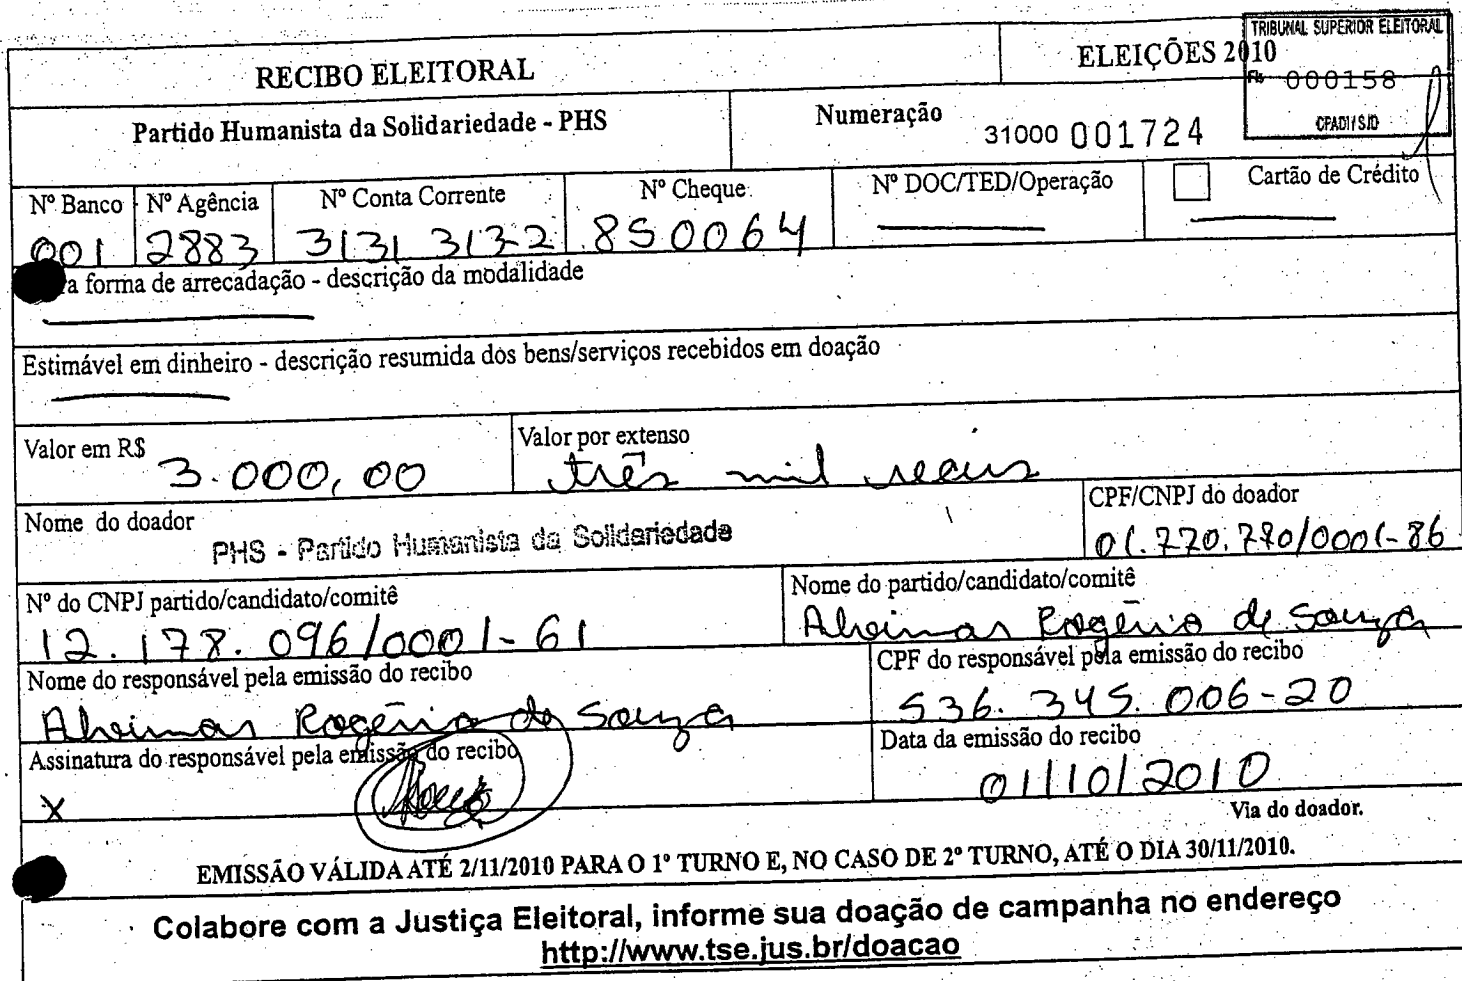 TRIBUNAL SUPERIOR ELEITORAL
Fls 000158
CPADI/SJD
RECIBO ELEITORAL
ELEIÇÕES 2010
Partido Humanista da Solidariedade - PHS
Numeração
31000 001724
Nº Banco Nº Agência Nº Conta Corrente Nº Cheque Nº DOC/TED/Operação Cartão de Crédito
001 2883 3131 3132 850064
a forma de arrecadação - descrição da modalidade
Estimável em dinheiro - descrição resumida dos bens/serviços recebidos em doação
Valor em R$ 3.000,00
Valor por extenso
três mil reais
Nome do doador
PHS - Partido Humanista da Solidariedade
CPF/CNPJ do doador
01.770.770/0001-86
Nº do CNPJ partido/candidato/comitê
12.178.096/0001-61
Nome do partido/candidato/comitê
Alveimar Rogério de Souza
Nome do responsável pela emissão do recibo
Alveimar Rogério de Souza
CPF do responsável pela emissão do recibo
536.345.006-20
Assinatura do responsável pela emissão do recibo
X
Data da emissão do recibo
01/10/2010
Via do doador.
EMISSÃO VÁLIDA ATÉ 2/11/2010 PARA O 1º TURNO E, NO CASO DE 2º TURNO, ATÉ O DIA 30/11/2010.
Colabore com a Justiça Eleitoral, informe sua doação de campanha no endereço
http://www.tse.jus.br/doacao